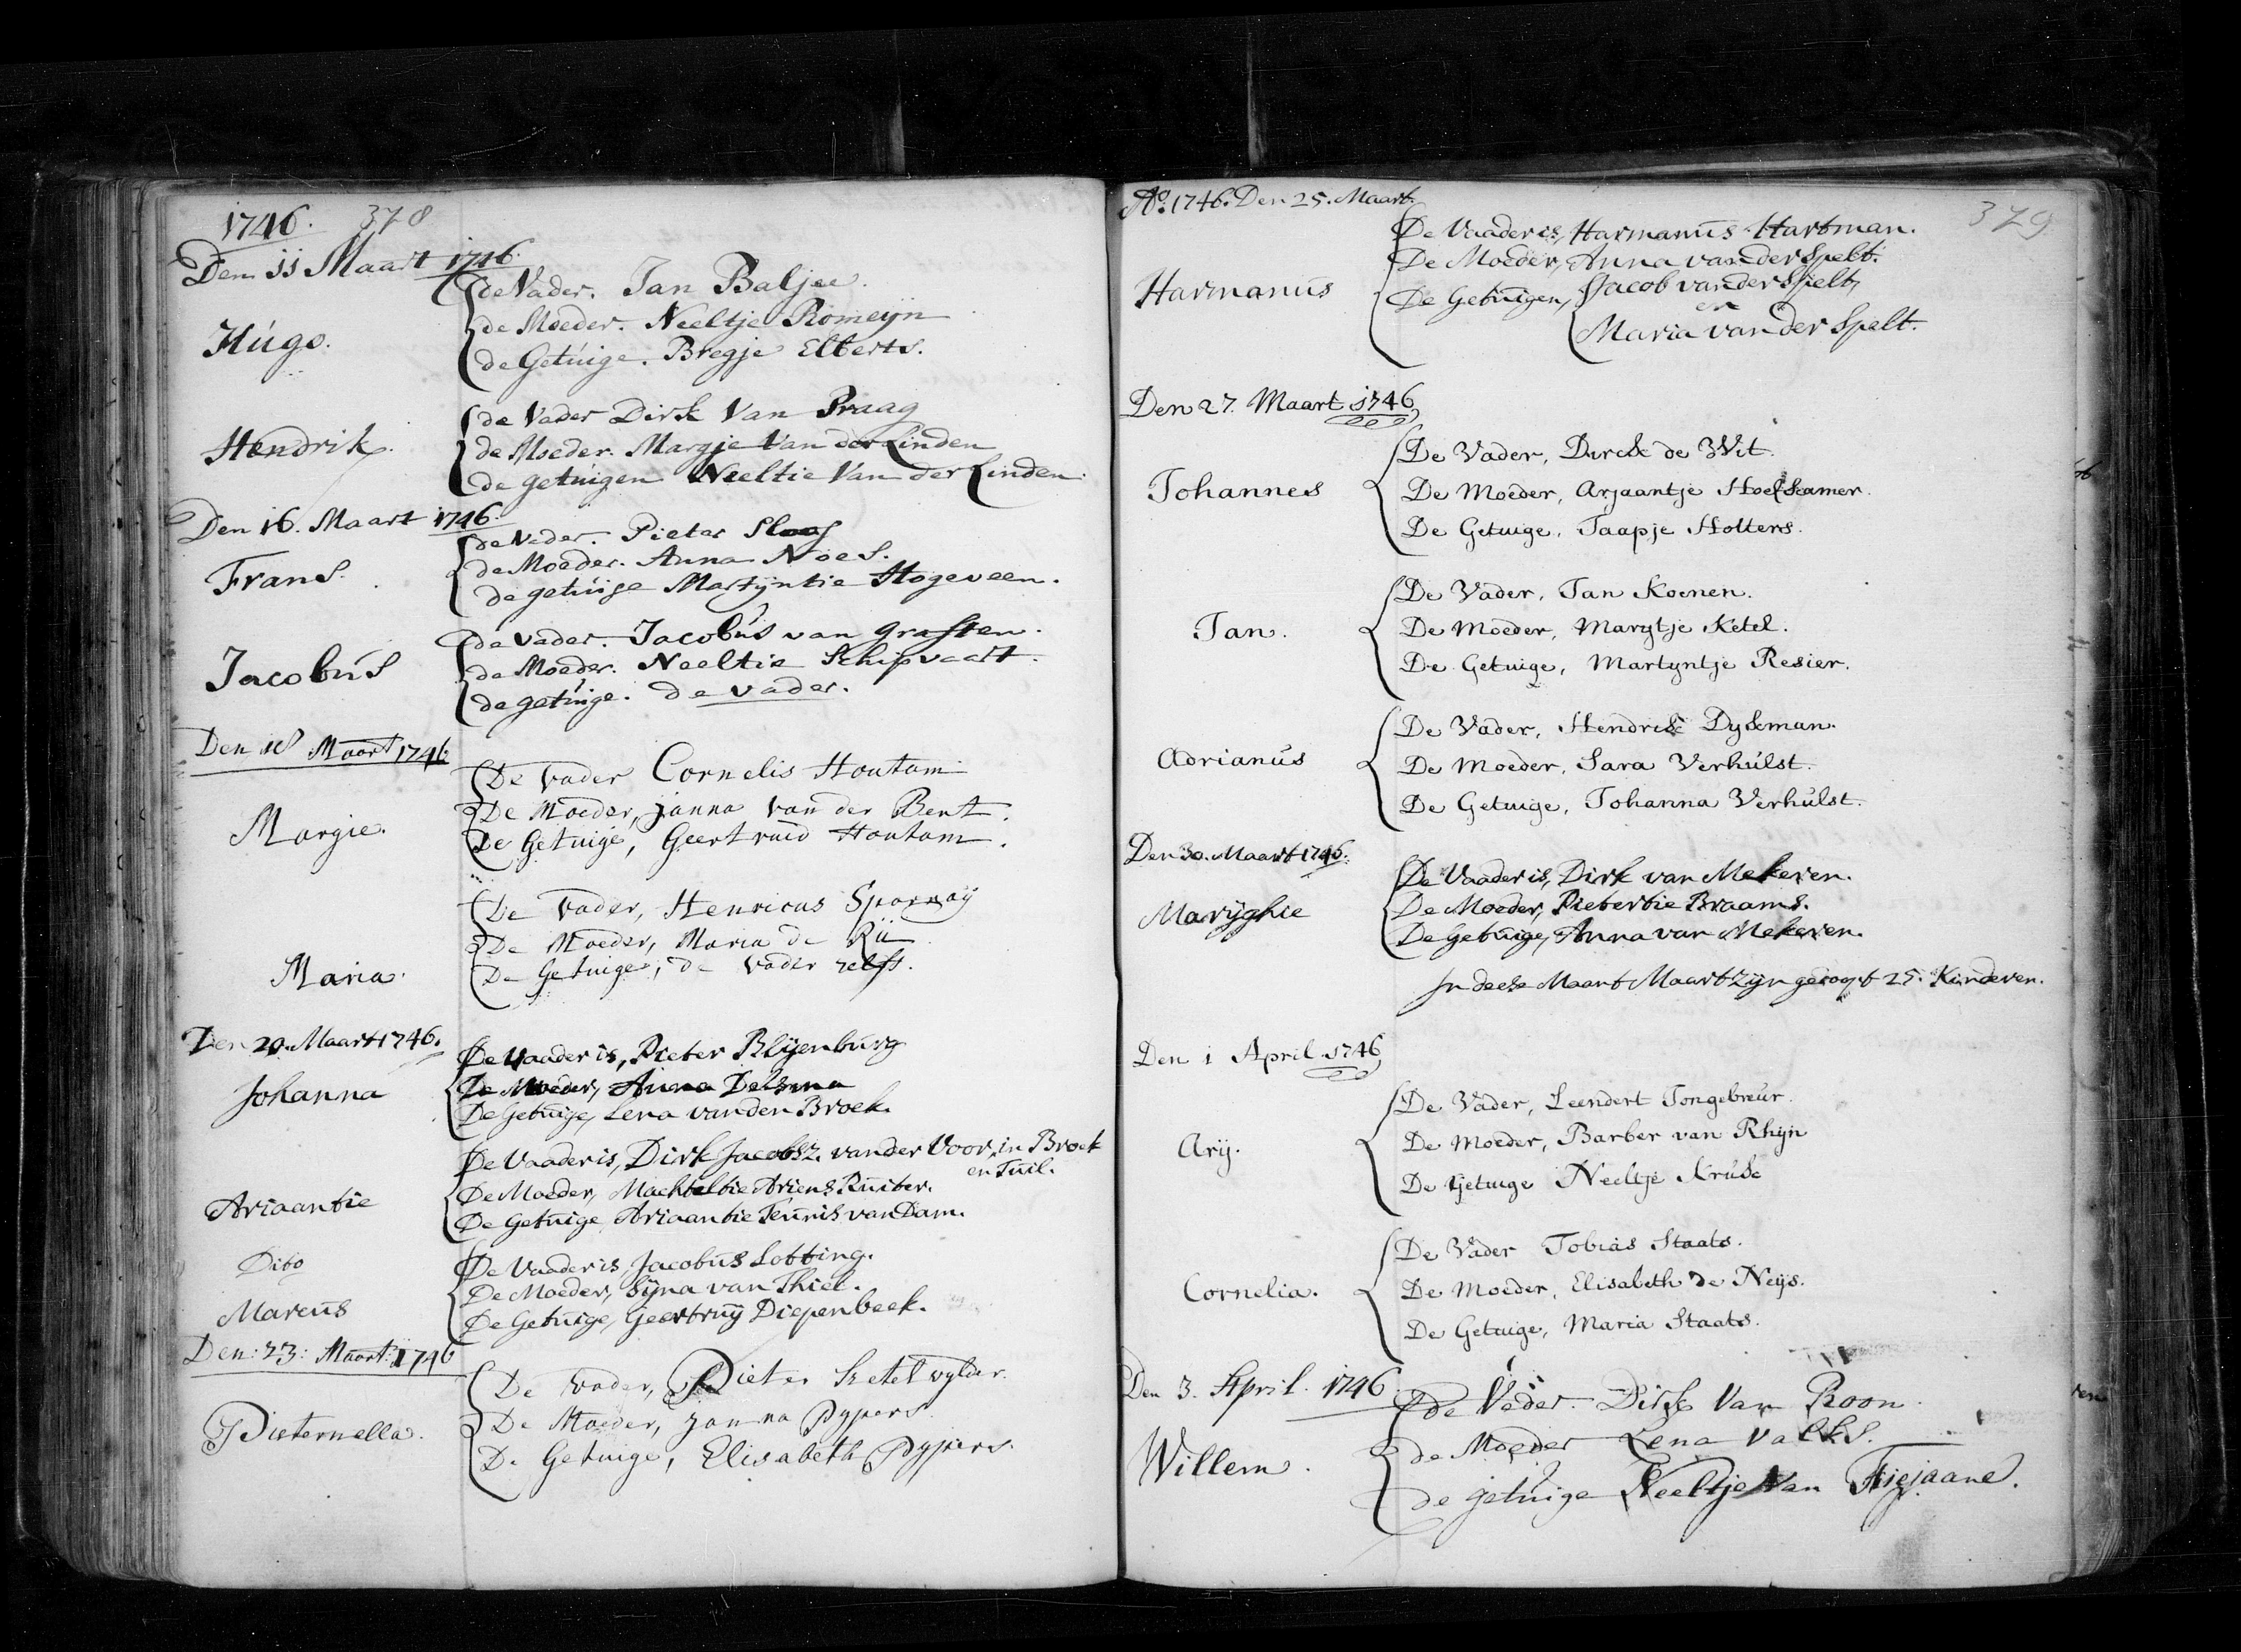 1746. 378
Den 11 Maart 1746.
Húgo.
de Vader. Jan Baljee.
de Moeder. Neeltje Romeyn
de Getúige. Bregje Elberts.
Hendrik.
de Vader Dirk Van Praag
de Moeder. Margje Van der Linden
de getúigen Neeltie Van der Linden.
Den 16. Maart 1746.
Frans.
de Vader. Pieter
de Moeder. Anna Noes.
de getúige Martijntie Hogeveen.
Jacobús
de Vader. Jacobús van Graften.
de Moeder. Neeltie Schipvaart.
de getúige. de vader.
Den 18 Maart 1746
Margie.
De Vader Cornelis Houtam
De Moeder, Janna van der Bent.
De Getuige, Geertruid Houtam.
Maria.
De Vader, Henricus Spornaÿ
De Moeder, Maria de Rü
De Getuige, de Vader zelfs.
Den 20. Maart 1746.
Johanna
De Vaader is, Pieter Blÿenbúrg
De Moeder, Anna
De Getuige, Lena van den Broek.
Ariaantie
De Vaader is, Dirk Jacobsz. vander Voor, in Broek
en Tuil.
De Moeder, Machteltie Ariens Ruiter.
De Getuige, Ariaantie Teunis van Dam.
Dito
Marcus
De Vaader is, Jacobus Lotting.
De Moeder, Sÿna van Thiel.
De Getuige, Geertruÿ Diepenbeek.
Den: 23: Maart: 1746
Pieternella.
De Vader, Pieter Ketel wylder.
De Moeder, Janna Pypers.
De Getuige, Elisabeth Pypers.
Ao. 1746. Den 25. Maart. 379
Harmanus
De Vaader is, Harmanus Hartman.
De Moeder, Anna vander Spelt.
De Getuigen, Jacob vander Spelt,
en
Maria vander Spelt.
Den 27. Maart 1746
Johannes
De Vader, Durck de Wit.
De Moeder, Arjaantje Hoefkamer.
De Getuige, Jaapje Holters.
Jan.
De Vader, Jan Koenen.
De Moeder, Marytje Ketel.
De Getuige, Martyntje Resier.
Adrianus
De Vader, Hendrik Dykman.
De Moeder, Sara Verhulst.
De Getuige, Johanna Verhulst.
Den 30. Maart 1746.
Marÿghie
De Vaader is, Dirk van Mekeren.
De Moeder, Pietertie Braams.
De Getuige, Anna van Mekeren.
In deese Maant Maart zijn gedoopt 25. Kinderen.
Den 1 April 1746
Arij.
De Vader, Leendert Jongebreur.
De Moeder, Barber van Rhijn
De Getuige Neeltje Kruk
Cornelia.
De Vader Tobias Staats.
De Moeder, Elisabeth de Neijs.
De Getuige, Maria Staats.
Den 3. April. 1746
Willem.
de Vader. Dirk Van Roon.
de Moeder Lena Valks.
de getúige Neeltje Van